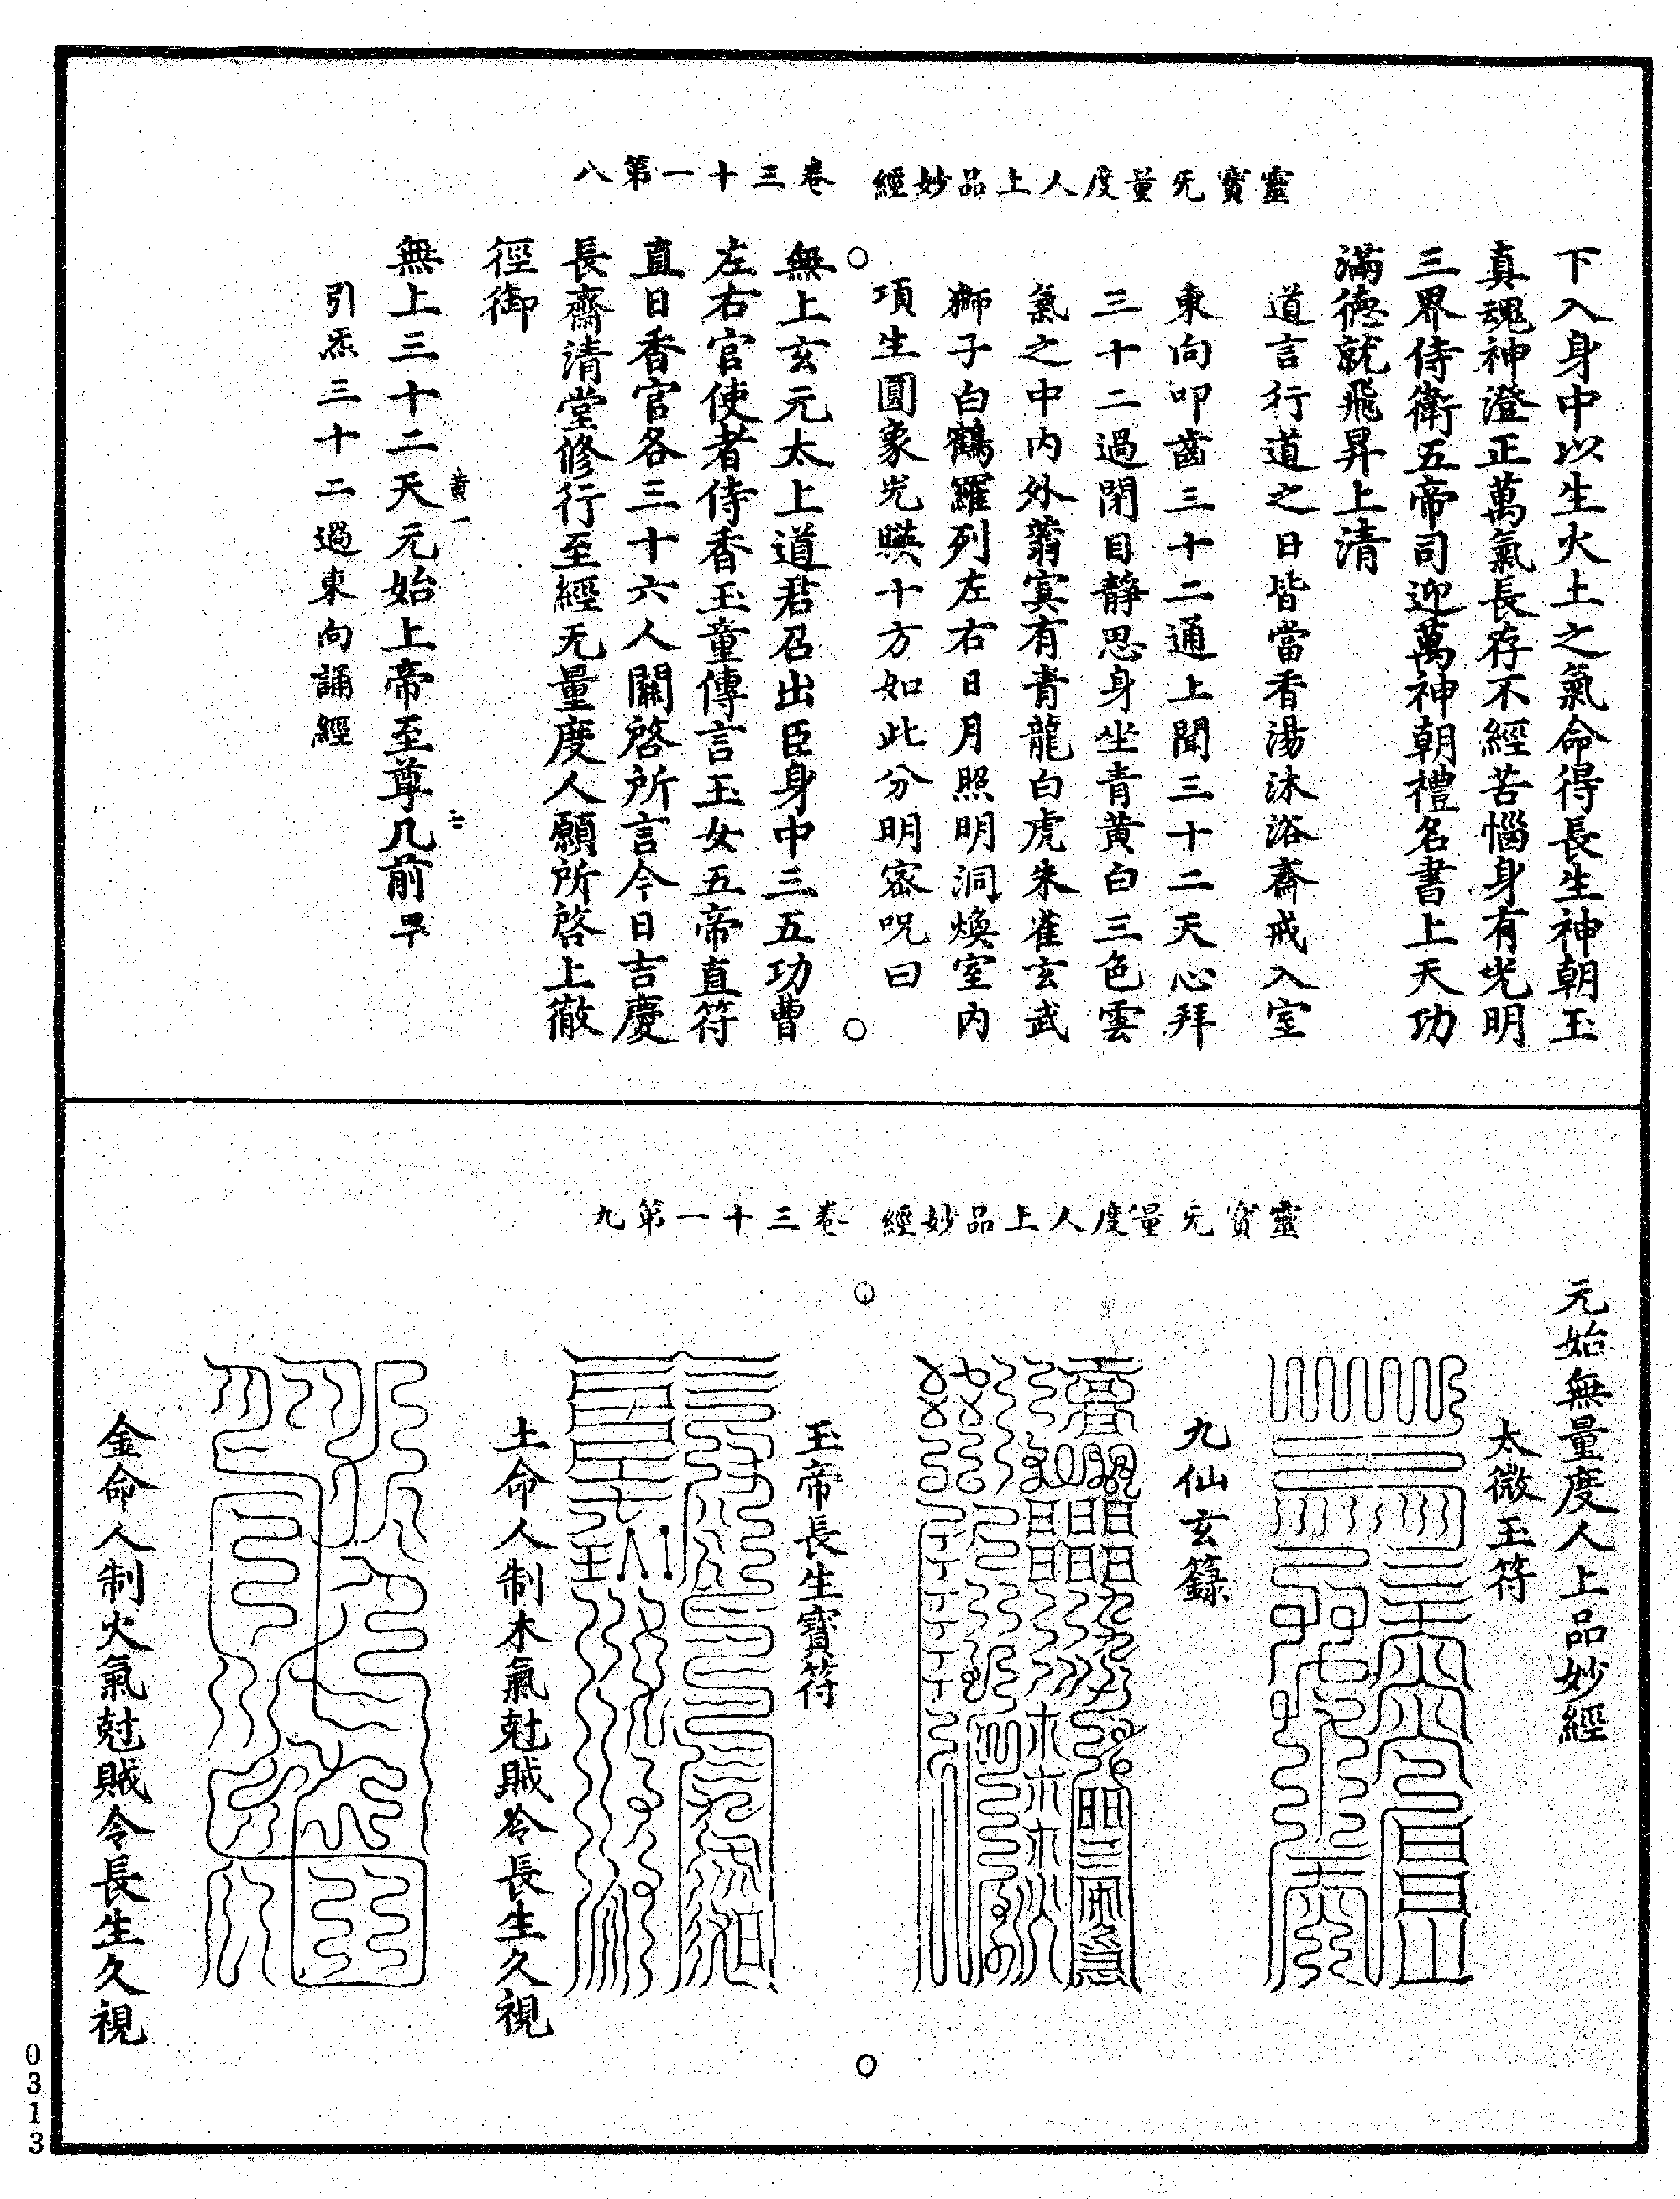 靈寶无量度人上品妙經　卷三十一第八
下入身中以生火土之氣命得長生神朝玉
真魂神澄正萬氣長存不經苦惱身有光明
三界侍衛五帝司迎萬神朝禮名書上天功
滿德就飛昇上清
道言行道之日皆當香湯沐浴齋戒入室
東向叩齒三十二通上聞三十二天心拜
三十二過閉目靜思身坐青黃白三色雲
氣之中內外蓊冥有青龍白虎朱雀玄武
獅子白鶴羅列左右日月照明洞煥室內
項生圓象光暎十方如此分明密呪曰
無上玄元太上道君召出臣身中三五功曹
左右官使者侍香玉童傳言玉女五帝直符
直日香官各三十六人關啓所言今日吉慶
長齋清堂修行至經无量度人願所啓上徹
徑御
黃一
無上三十二天元始上帝至尊几前
引炁三十二過東向誦經
靈寶无量度人上品妙經　卷三十一第九
元始無量度人上品妙經
太微玉符
九仙玄籙
玉帝長生寶符
土命人制木氣尅賊令長生久視
金命人制火氣尅賊令長生久視
0313